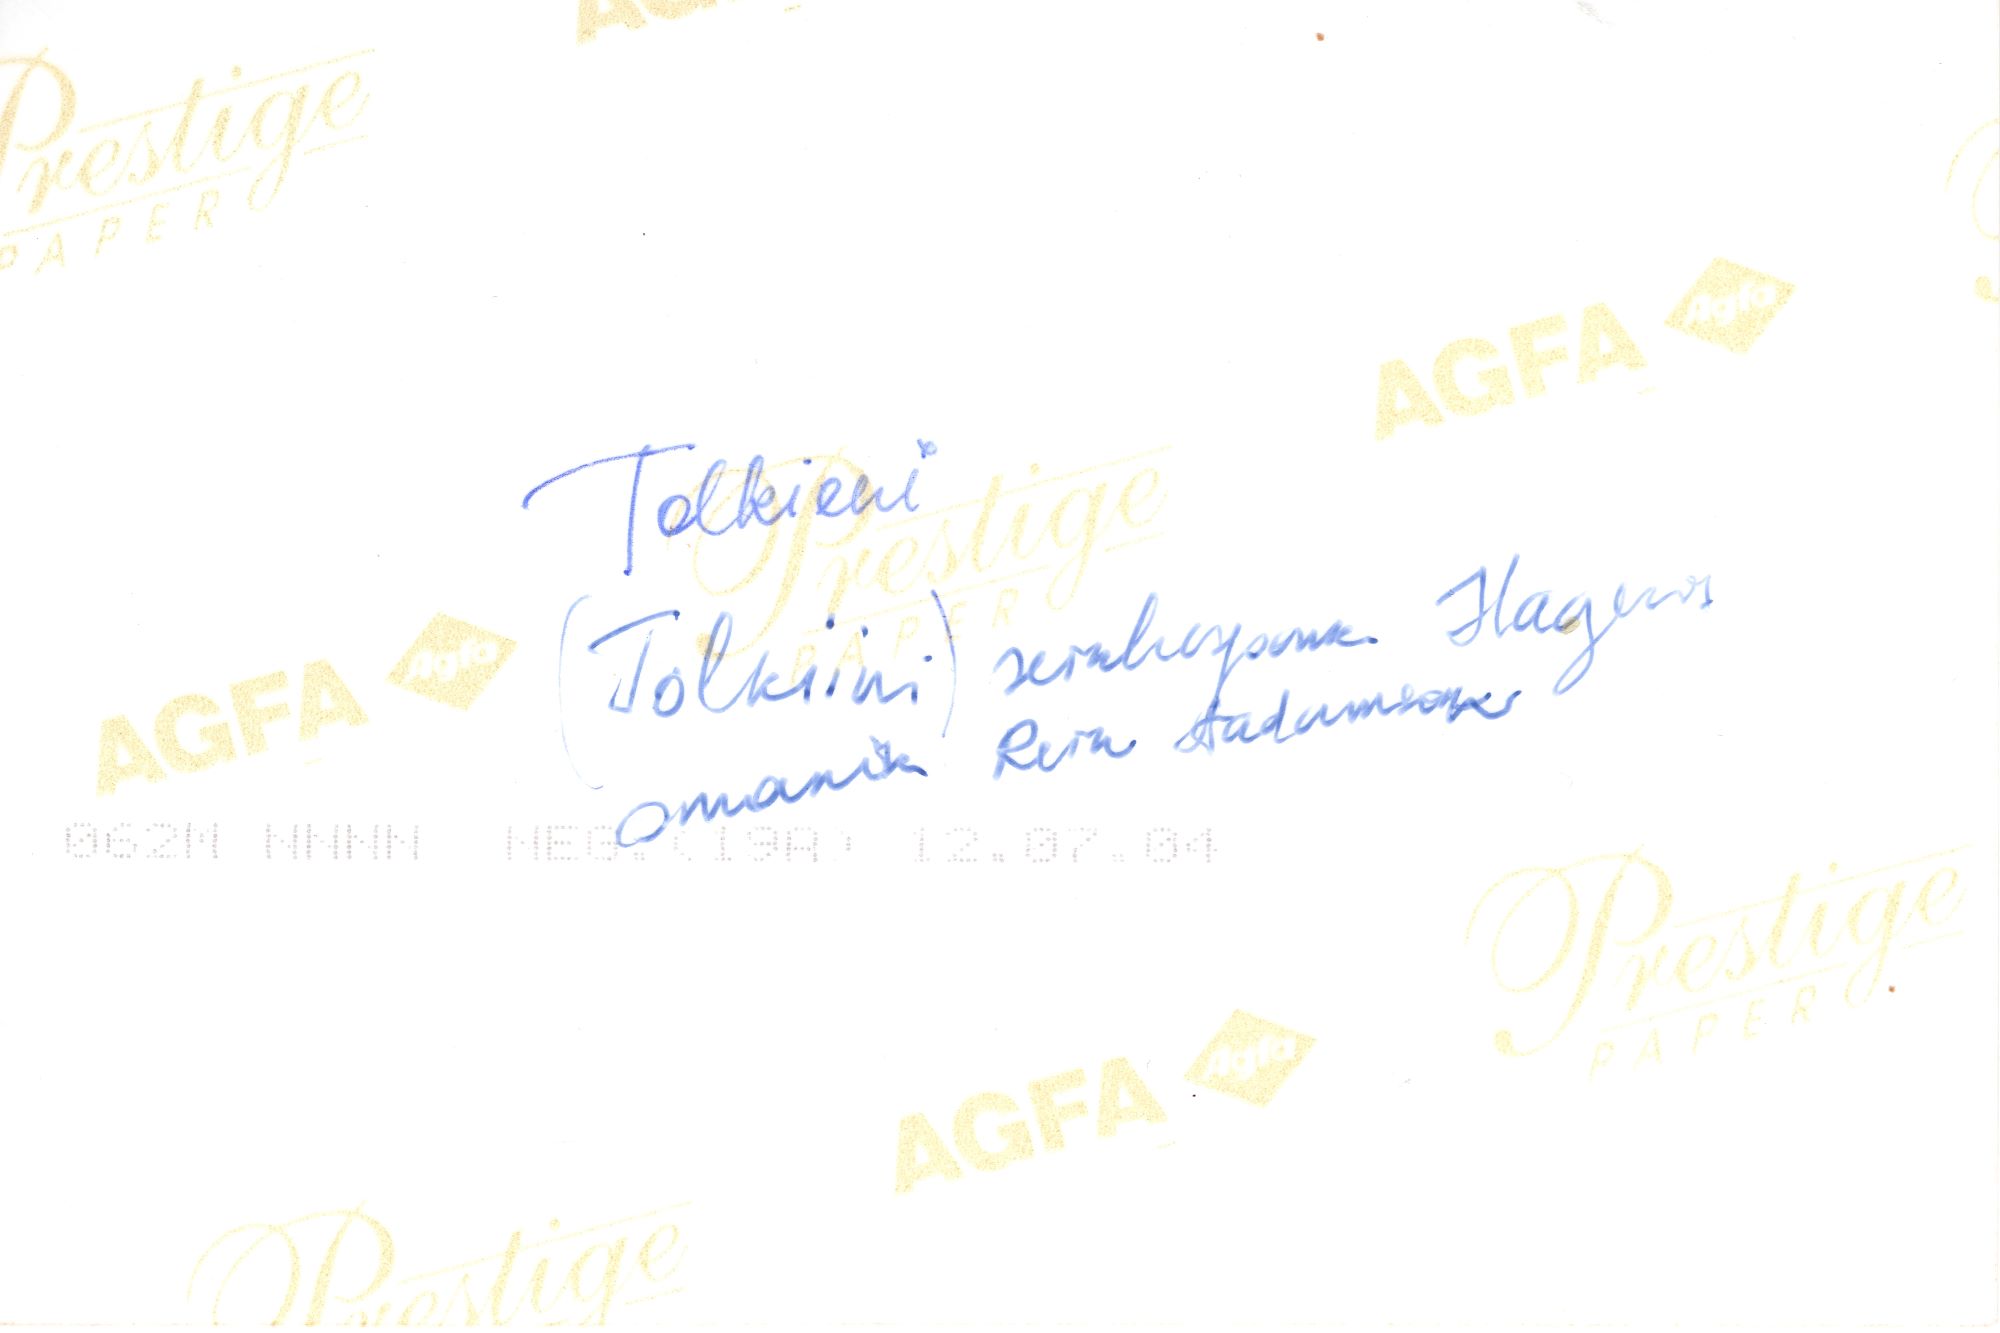 AGFA
Prestige
PAPER
AGFA Agfa
Tolkieni
Prestige
PAPER
(Tolkiini) seinkoopame Hageris
omanik Rein Aadamsoo
AGFA Agfa
062M NNNN NEG. 12.07.04
Prestige
PAPER
AGFA Agfa
Prestige